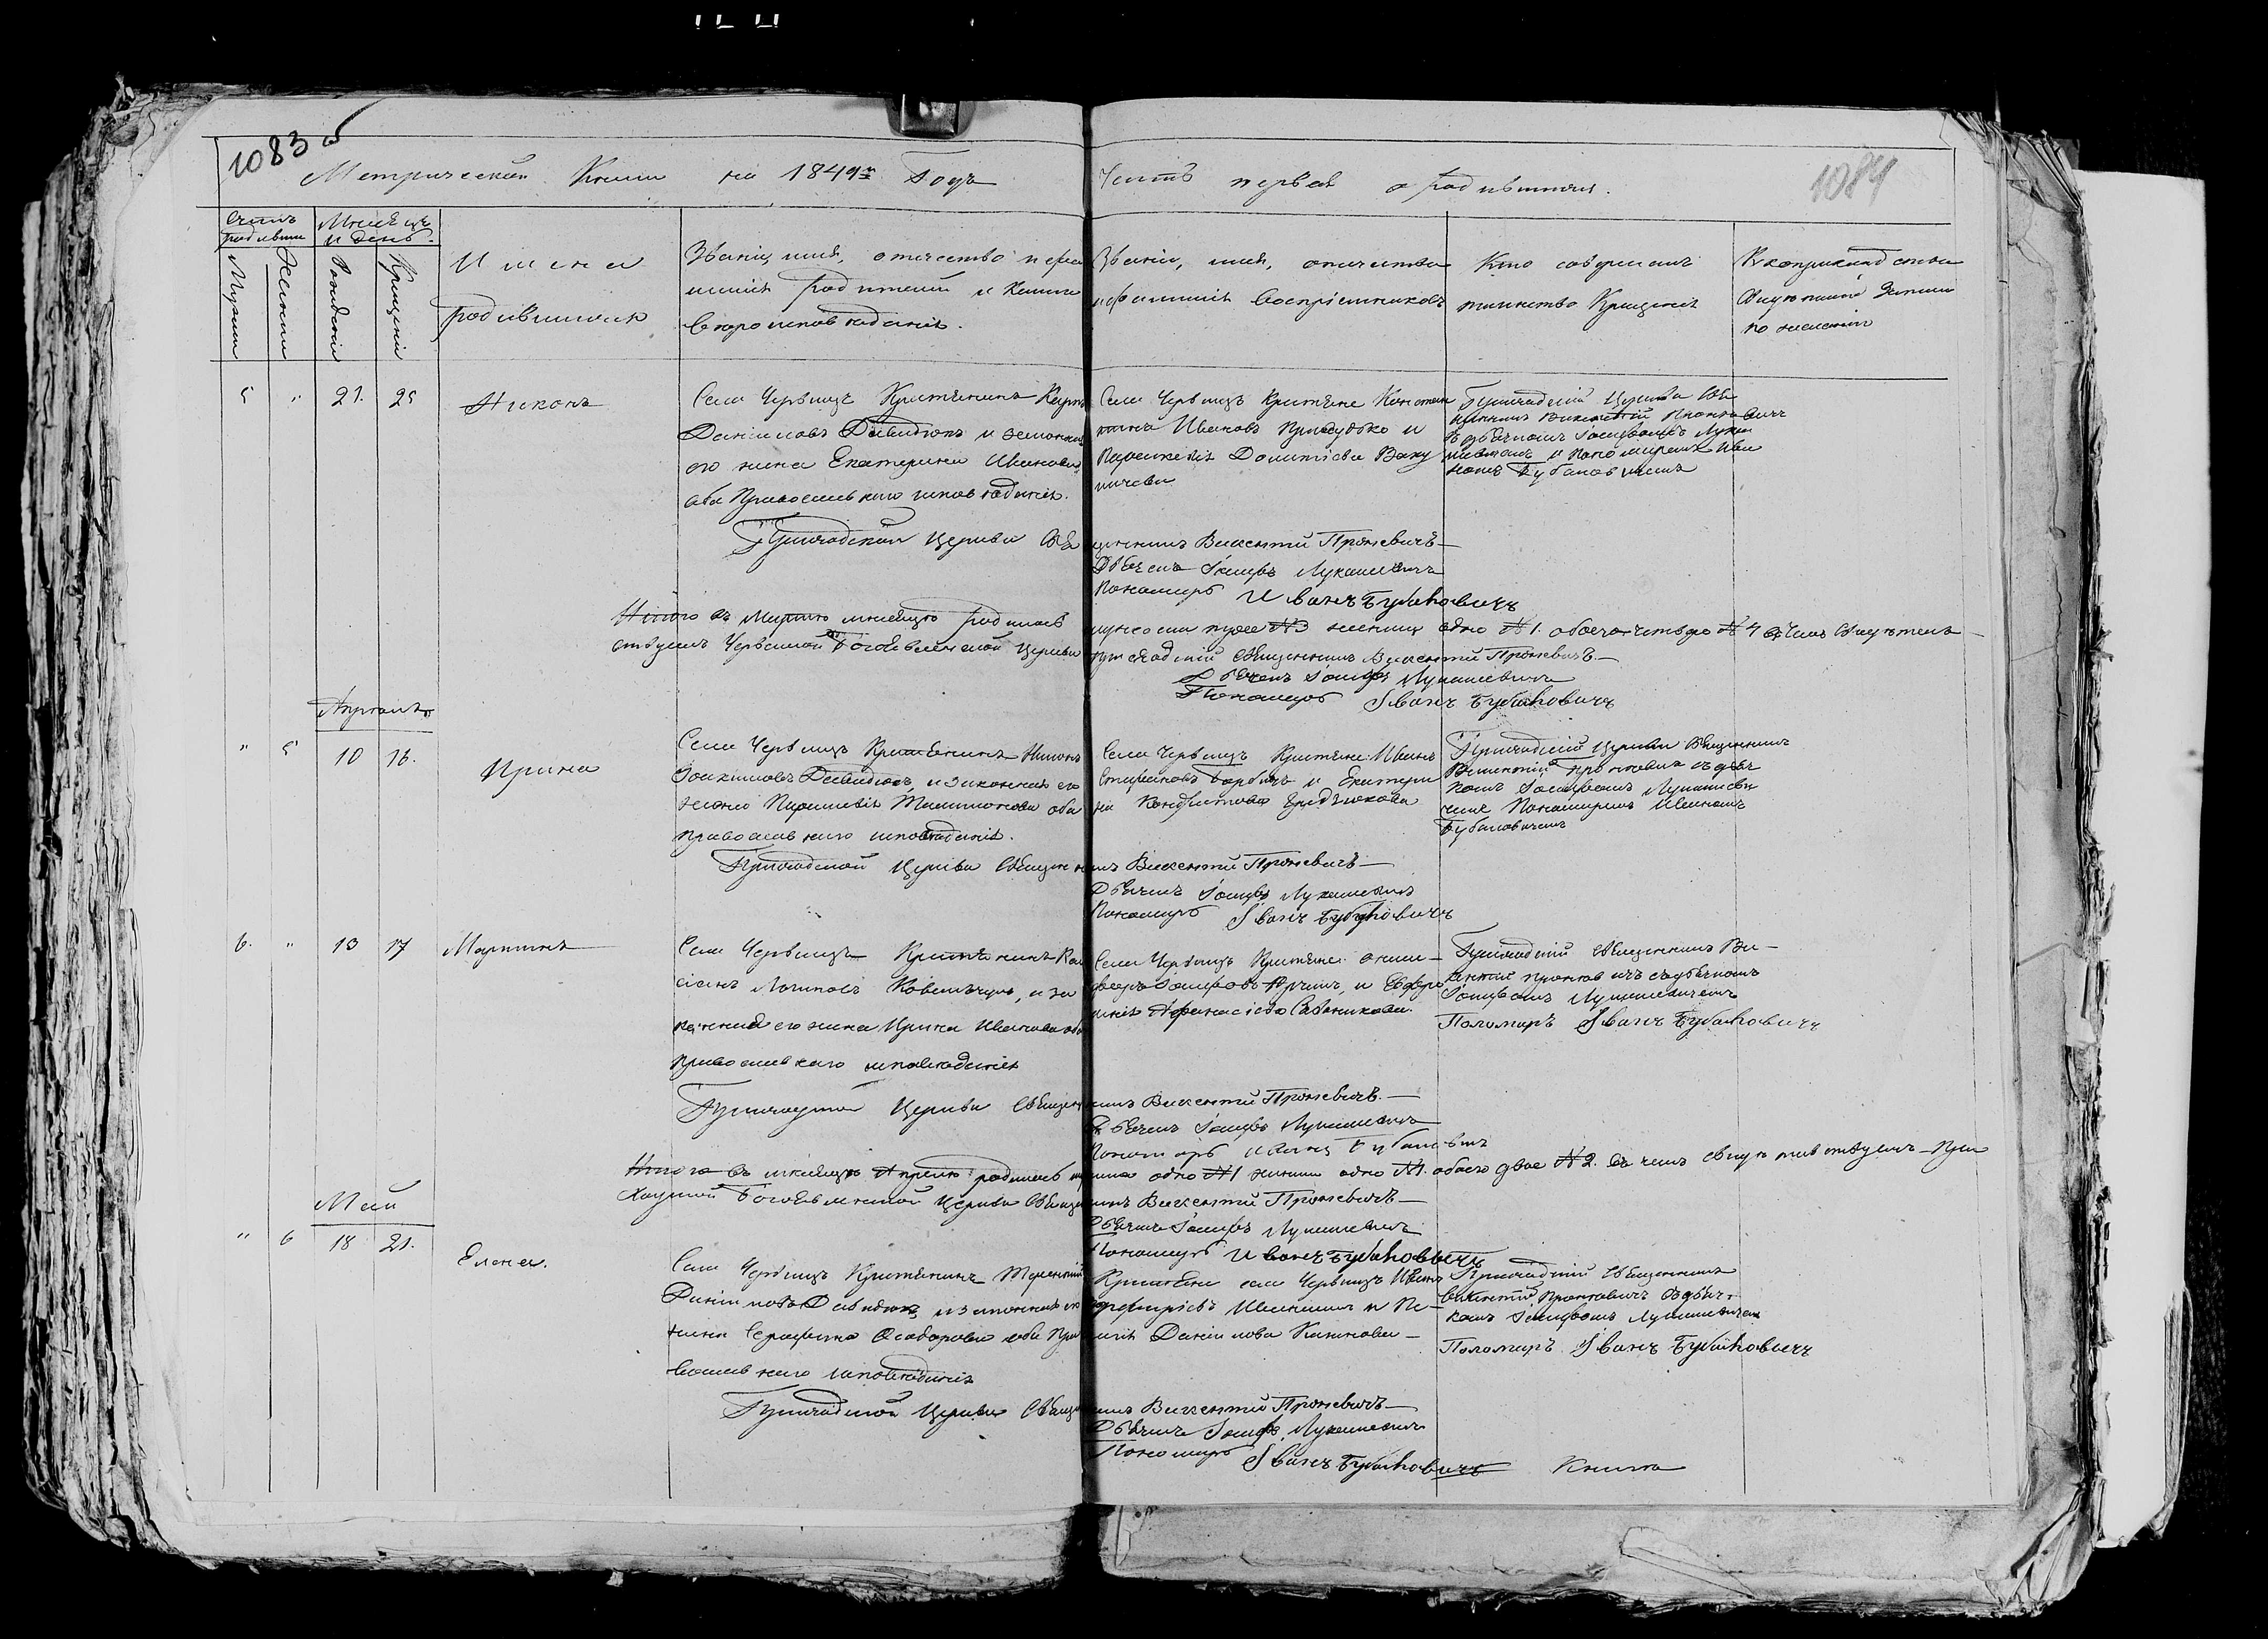 1083 об
1084
Метрической Книги на 1849й Годъ Часть первая о родившихся.
Счетъ родивших
Мѣсяцъ и день.
Мужеска
Женска
Рожденія
Крещенія
Имена родившихся
Званіе, имя, отечество и фамилія родителей и какого вѣроисповѣданія.
Званіе, имя, отечество и фамилія Воспріемниковъ
Кто совершалъ таинство Крещенія
Рукоприкладство свидѣтелей записи по желанію
5 " 21. 25 Никонъ
Села Червищъ Крестьянинъ Карпъ
Даніиловъ Давидюкъ и законная
его жена Екатерина Иванова
оба Православнаго исповѣданія.
Села Червищъ Крестьяне Констан
тинъ Ивановъ и
Параскевія
Приходской Церкви Свя
щенникъ Викентій Проневичъ
съ дьячкомъ Іосифомъ Лука
шевичемъ и пономаремъ Ива
номъ Бубановичемъ
Приходской Церкви Священникъ Викентій Проневичъ
Дьячекъ Іосифъ Лукашевичъ
Пономарь Иванъ Бубановичъ
Итого въ Мартѣ мѣсяцѣ родилось мужеска трое №3 женска одно №1. обоего четверо №4 въ чемъ свидѣтель
ствуемъ Червиской Богоявленской Церкви приходскій Священникъ Викентій Проневичъ
Дьячекъ Іосифъ Лукашевичъ
Пономарь Іванъ Бубановичъ
Апрѣль
" 5 10 16. Ирина
Села Червищъ Крестьянинъ Никонъ
Іоакимовъ Давидюкъ, и законная его
жена Параскевія оба
православнаго исповѣданія.
Села Червищъ Крестьяне Иванъ
Стефановъ и Екатери
на
Приходской Церкви Священникъ
Викентій Проневичъ съ дьяч
комъ Іосифомъ Лукашеви
чемъ Пономаремъ Иваномъ
Бубановичемъ
Приходской Церкви Священникъ Викентій Проневичъ
Дьячекъ Іосифъ Лукашевичъ
Пономарь Іванъ Бубановичъ
6. " 13 17 Мартинъ
Села Червищъ Крестьянинъ Кас
сіянъ Логиновъ и за
конная его жена Ирина Иванова оба
православнаго исповѣданія
Села Червищъ Крестьяне
Іосифовъ и Евфро
Афанасіева
Приходскій священникъ Ви
кентій Проневичъ съ дьячкомъ
Іосифомъ Лукашевичемъ
Пономарь Іванъ Бубановичъ
Церкви Священникъ Викентій Проневичъ.
Дьячекъ Іосифъ Лукашевичъ
Пономарь Иванъ Бубановичъ
Итого въ мѣсяцѣ Апрѣлѣ родилось мужеска одно №1 женска одно №1. обоего двое №2. въ чемъ свидѣтельствуемъ При
ходской Богоявленской Церкви Священникъ Викентій Проневичъ
Дьячекъ Іосифъ Лукашевичъ
Пономарь Иванъ Бубановичъ
Май
" 6 18 21. Елена.
Села Червищъ Крестьянинъ Терентій
Даніиловъ Давидюкъ и законная его
жена Серафима Феодорова оба Пра
вославнаго исповѣданія
Крестьяне села Червищъ Иванъ
Порфиріевъ и Пе
лагія Даніилова
Приходскій священникъ
Викентій Проневичъ съ дьяч
комъ Іосифомъ Лукашевичемъ
Пономарь Іванъ Бубановичъ
Приходской Церкви Священникъ Викентій Проневичъ
Дьячекъ Іосифъ Лукашевичъ
Пономарь Іванъ Бубановичъ
Книга